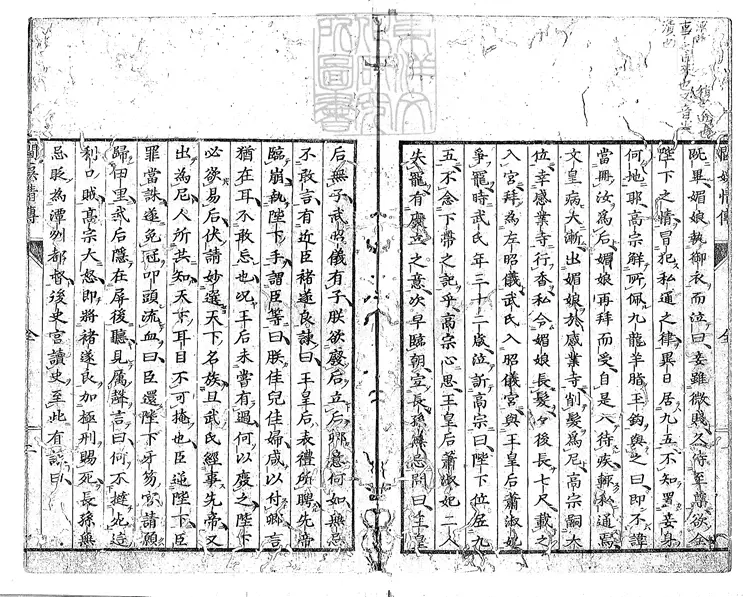 閫娛情傳
既畢媚娘執御衣而泣曰妾雖微賤久侍至尊欲全
陛下之情冒犯私通之律異日居九五不知置妾身
何地耶高宗解所佩九龍羊脂玉鉤與之曰即不諱
當冊汝為后媚娘再拜而受自是入侍疾輒私通焉
文皇病大漸出媚娘於感業寺削髮為尼高宗嗣大
位幸感業寺行香私令媚娘長髮後長七尺載之
入宮拜為左昭儀武氏入昭儀宮與王皇后蕭淑妃
爭寵時武氏年三十二歲泣訴高宗曰陛下位居九
五不念下帶之記乎高宗心思王皇后蕭淑妃二人
失寵有廢立之意次早臨朝宣長孫無忌問曰王皇
后無子武昭儀有子朕欲廢后立后卿意何如無忌
不敢言有近臣褚遂良諫曰王皇后表禮所聘先帝
臨崩執陛下手謂臣等曰朕佳兒佳婦咸以付卿言
猶在耳不敢忘也况王后未嘗有過何以廢之陛下
必欲易后伏請妙選天下名族且武氏經事先帝又
出為尼人所共知天下耳目不可掩也臣逆陛下臣
罪當誅遂免冠叩頭流血曰臣還陛下牙笏乞請願
歸田里武后隱在屏後聽見厲聲言曰何不撻死這
利口賊高宗大怒即將褚遂良加極刑賜死長孫無
忌貶為潭州都督後史官讀史至此有詩曰